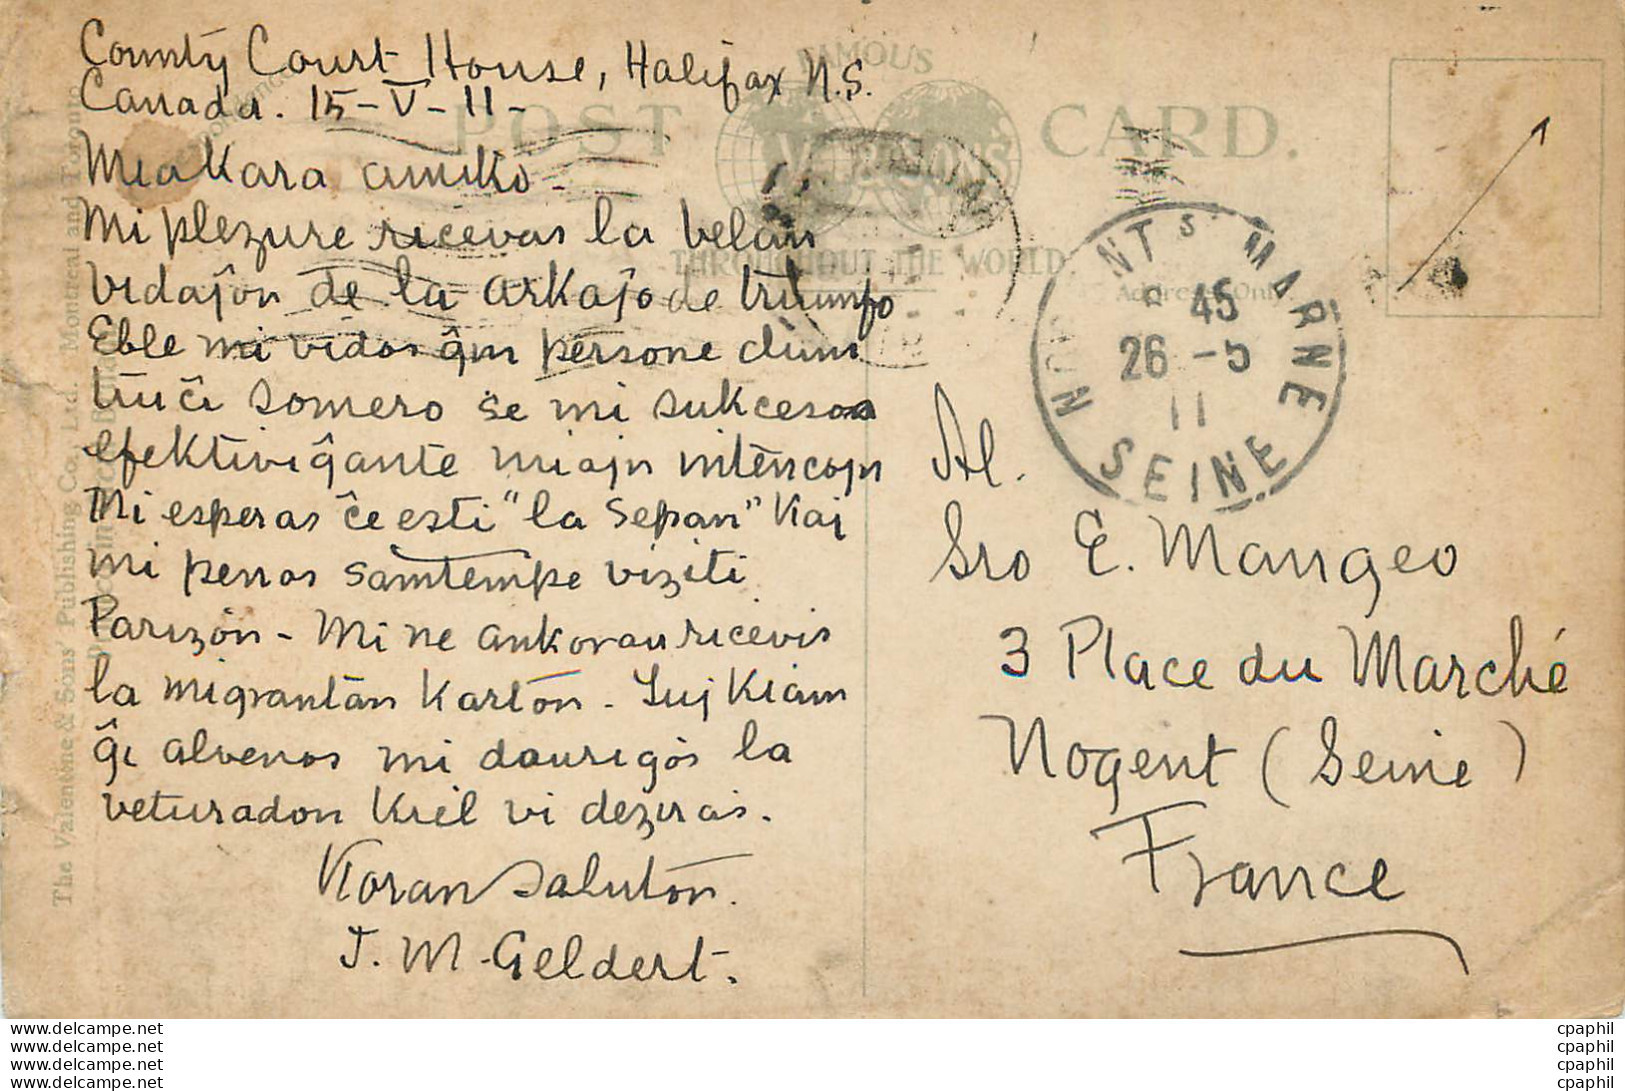 County Court House, Halifax N.S.
Canada. 15-V-11-
Mia Kara amiko -
Mi plezure ricevas la belan
vidaĵon de la arkaĵo de triumfo
Eble mi vidos ĝin persone dum
tiu ĉi somero se mi sukcesos
efektiviĝante miajn intencojn
Mi esperas ĉe esti "la Sepan" Kaj
mi penos samtempe viziti
Parizon - Mi ne ankorau ricevis
la migrantan Karton. Tuj Kiam
ĝi alvenos mi daurigos la
veturadon Kiel vi deziras.
Koran Saluton.
J. M. Geldert.
POST CARD.
FAMOUS
THROUGHOUT THE WORLD
The Valentine & Sons' Publishing Co., Ltd. Montreal and Toronto
NOGENT S MARNE
45
26 - 5
11
SEINE
Al.
Sro E. Mangeo
3 Place du Marché
Nogent (Seine)
France
www.delcampe.net
www.delcampe.net
www.delcampe.net
www.delcampe.net
cpaphil
cpaphil
cpaphil
cpaphil